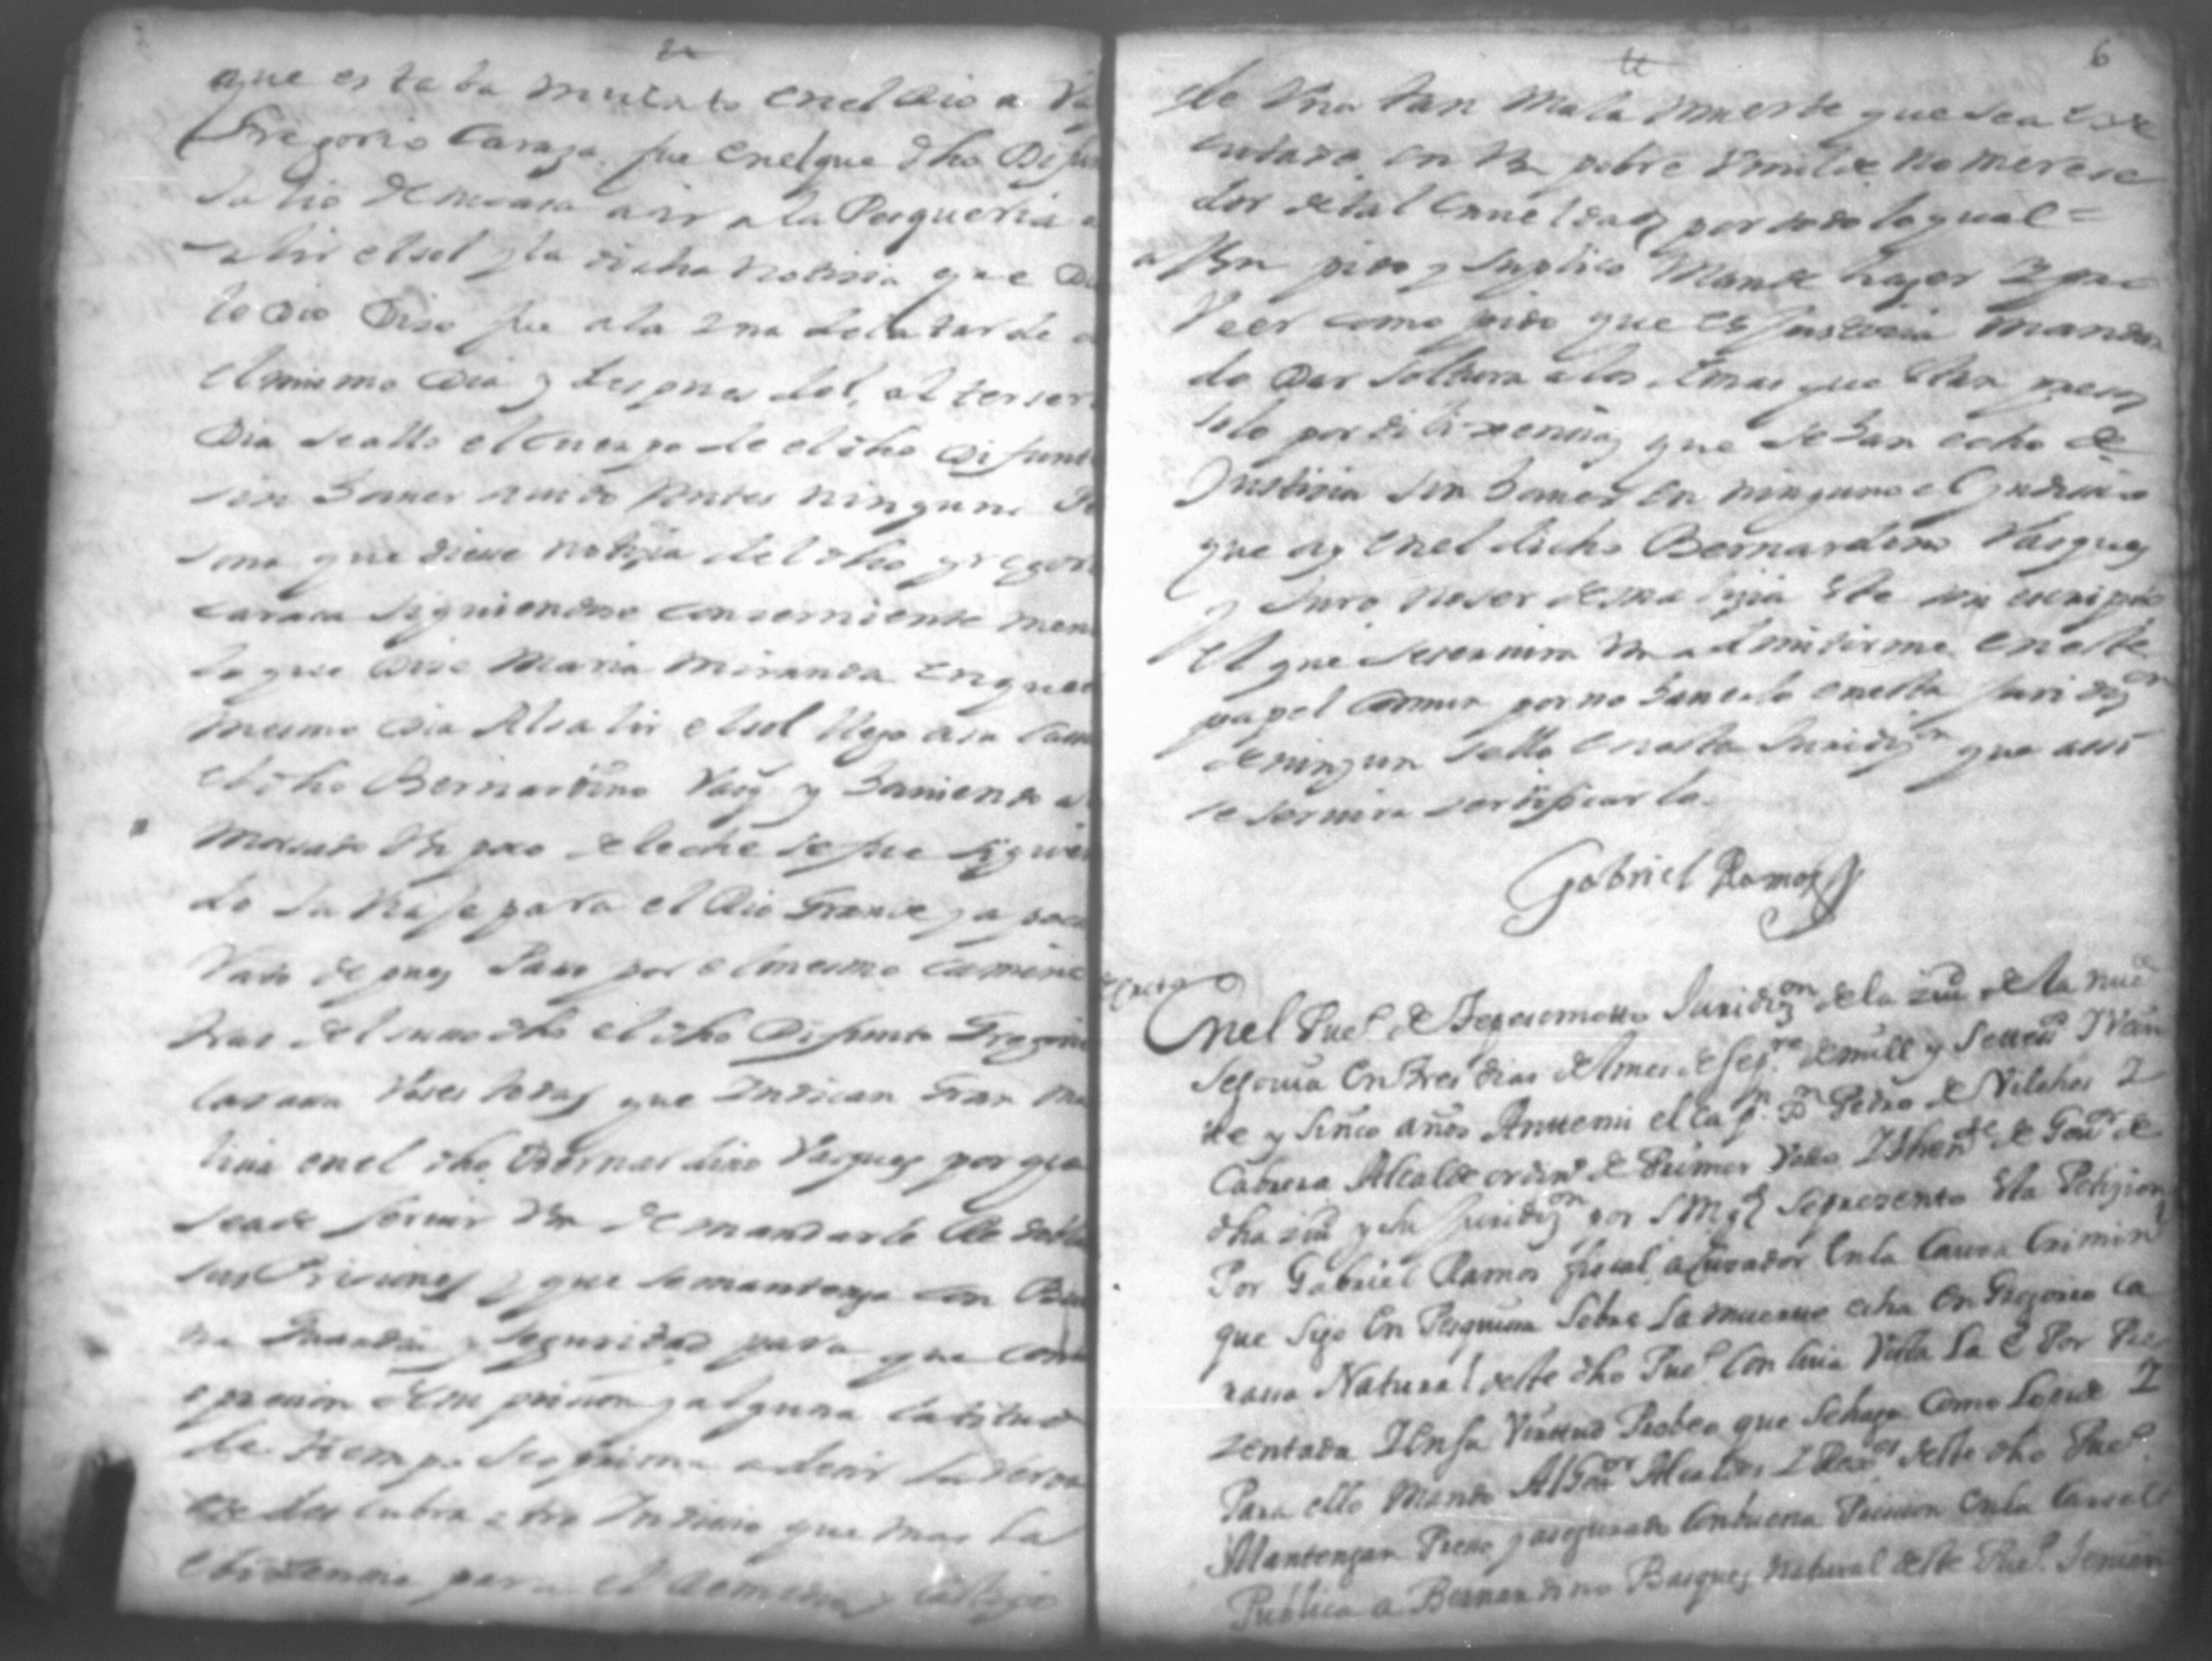 que estaba muerto en el Rio a
Gregorio Caraza fue en el que dho Difun
salio de mi casa a ir a la Pesqueria
salir el sol y la dicha notisia que
le dio Diso fue a la una de la tarde
el mismo Dia y despues del, al terser
Dia se allo el cuerpo de el dho Difunt
sin hauer auido antes ninguna Pe
sona que diese notizia del dho gregori
caraca siguiendose
lo que Dise Maria Miranda en que
mesmo Dia Al salir el sol llego a su casa
el dho Bernardino Vasqz y hauiendo al
morsado Un poco de leche se fue siguien
do su viaje para el Rio Grande y a poco
rato despues Paso por el mesmo camino
tras del suso dho el dho Difunto Gregorio
Caraca Voses todas que Indican Gran ma
lisia en el dho Bernardino Vasques por que
sea de seruir Vm de mandarle
sus Prisiones y que se mantenga con Bue
na Guardia y seguridad para que con
opresion de su prision y alguna latitud
de tiempo
descubra otro Indisio que mas
euidensia para el Remedio y castigo
6
de Una tan Mala Muerte que sea
cutado en Un pobre Umilde no merese
dor de tal Crueldad por todo lo qual =
a Vm pido y suplico Mande hazer y pro
Veer como pido que es Justicia mandan
do Dar soltura a los demas que estan presos
solo por dilixencias que se han echo de
Justisia sin hauer en ninguno el Yndisio
que ay en el dicho Bernardino Vasques
y Juro no ser de malizia este mi escripto
el que se seruira Vm admitirme en este
papel comun por no hauerlo en esta juridizon
de ningun sello en esta Juridizn que assi
se seruira sertificarlo.
Gabriel Ramos
En el Pueo de Juridizon de la ziud de la nue
Segouia En tres dias del mes de Sepre de mill y Setteos Y Vein
tte y Sinco años Antte mi el Capn Dn Pedro de Vilches Y
Cabrera Alcalde ordino de Primer Votto Y thente de Gour de
dha ziud y su Juridizon por S Mgd Se presento Esta Petizion
Por Gabriel Ramos fiscal acusador En la Causa Crimin
que Sigo En Pesquisa Sobre La muerte echa En Gregorio Ca
raua Natural deste dho Pueo Con cuia Vista La E Por Pre
zentada Y En su Virttud Probeo que Se haga Como Se pide Y
Para ello Mando Al Gour Alcaldes Y Rexes deste dho Pueo
Mantengan Preso y asegurado Con buena Prision En la Carcel
Publica a Bernardino Basques natural deste Pueo